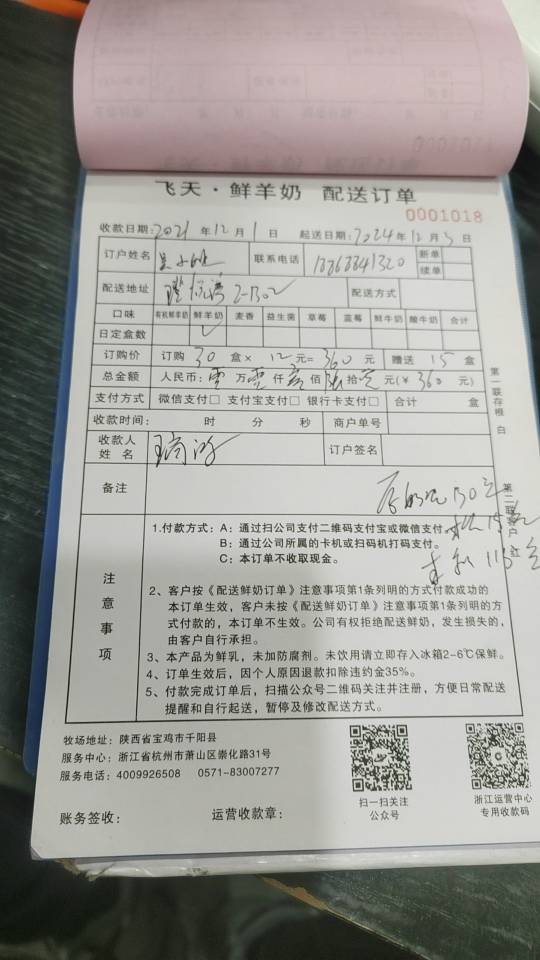 飞天·鲜羊奶 配送订单
0001018
收款日期:2021年12月1日 起送日期:2024年12月3日
订户姓名 吴小 联系电话 新单
续单
配送地址 2-1302 配送方式
口味 有机鲜羊奶 鲜羊奶 麦香 益生菌 草莓 蓝莓 鲜牛奶 酸牛奶 合计
日定盒数 ✓
订购价 订购 30 盒× 12 元= 360 元 赠送 15 盒
总金额 人民币:零万零仟叁佰陆拾元(¥ 360 元)
支付方式 微信支付□ 支付宝支付□ 银行卡支付□ 合计 盒
收款时间: 时 分 秒 商户单号
收款人姓名 订户签名
备注 130
15
115
第一联存根 白
第二联客户 红
注意事项
1.付款方式:A:通过扫公司支付二维码支付宝或微信支付。
B:通过公司所属的卡机或扫码机打码支付。
C:本订单不收取现金。
2、客户按《配送鲜奶订单》注意事项第1条列明的方式付款成功的
本订单生效,客户未按《配送鲜奶订单》注意事项第1条列明的方
式付款的,本订单不生效。公司有权拒绝配送鲜奶,发生损失的,
由客户自行承担。
3、本产品为鲜乳,未加防腐剂。未饮用请立即存入冰箱2-6℃保鲜。
4、订单生效后,因个人原因退款扣除违约金35%。
5、付款完成订单后,扫描公众号二维码关注并注册,方便日常配送
提醒和自行起送,暂停及修改配送方式。
牧场地址:陕西省宝鸡市千阳县
服务中心:浙江省杭州市萧山区崇化路31号
服务电话:4009926508 0571-83007277
扫一扫关注
公众号
浙江运营中心
专用收款码
账务签收: 运营收款章: